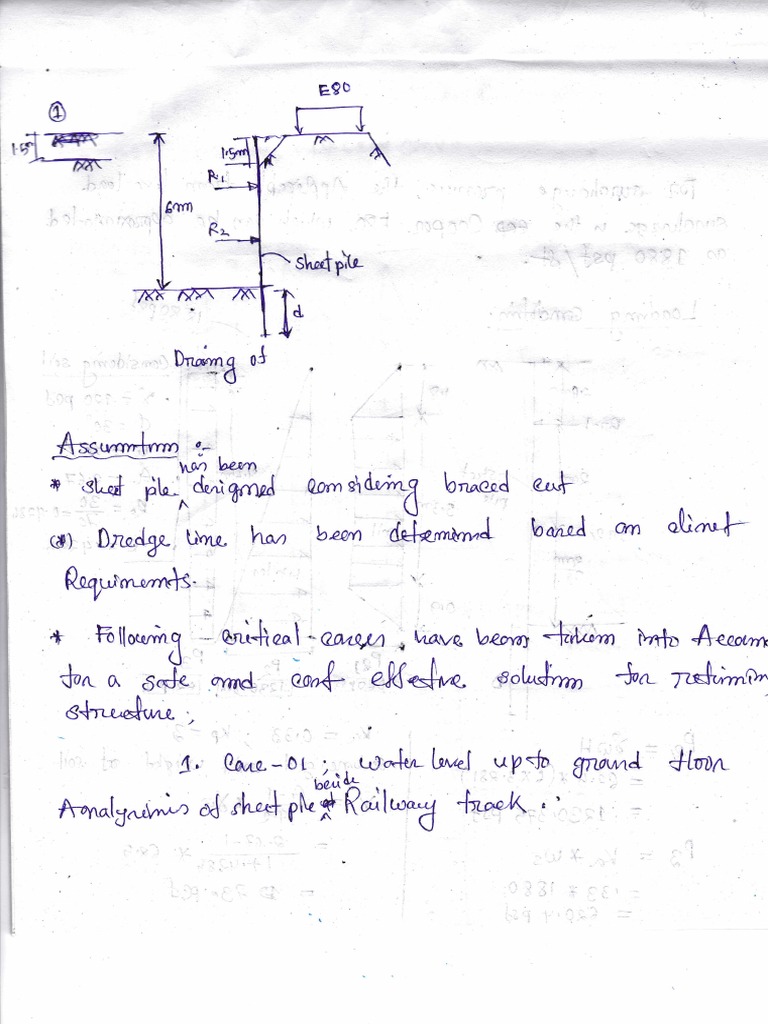 E80
①
1.5m
1.5m
R1
6m
R2
sheet pile
d
Draing of
Assumtion :-
has been
* sheet pile designed considering braced cut
(*) Dredge line has been determined based on client
Requirements.
* Following critical cases, have been taken into Accoun
for a safe and cost effective solution for retining
structure;
1. Case-01; water level up to ground floor
beside
Aanalysis of sheet pile Railway track.